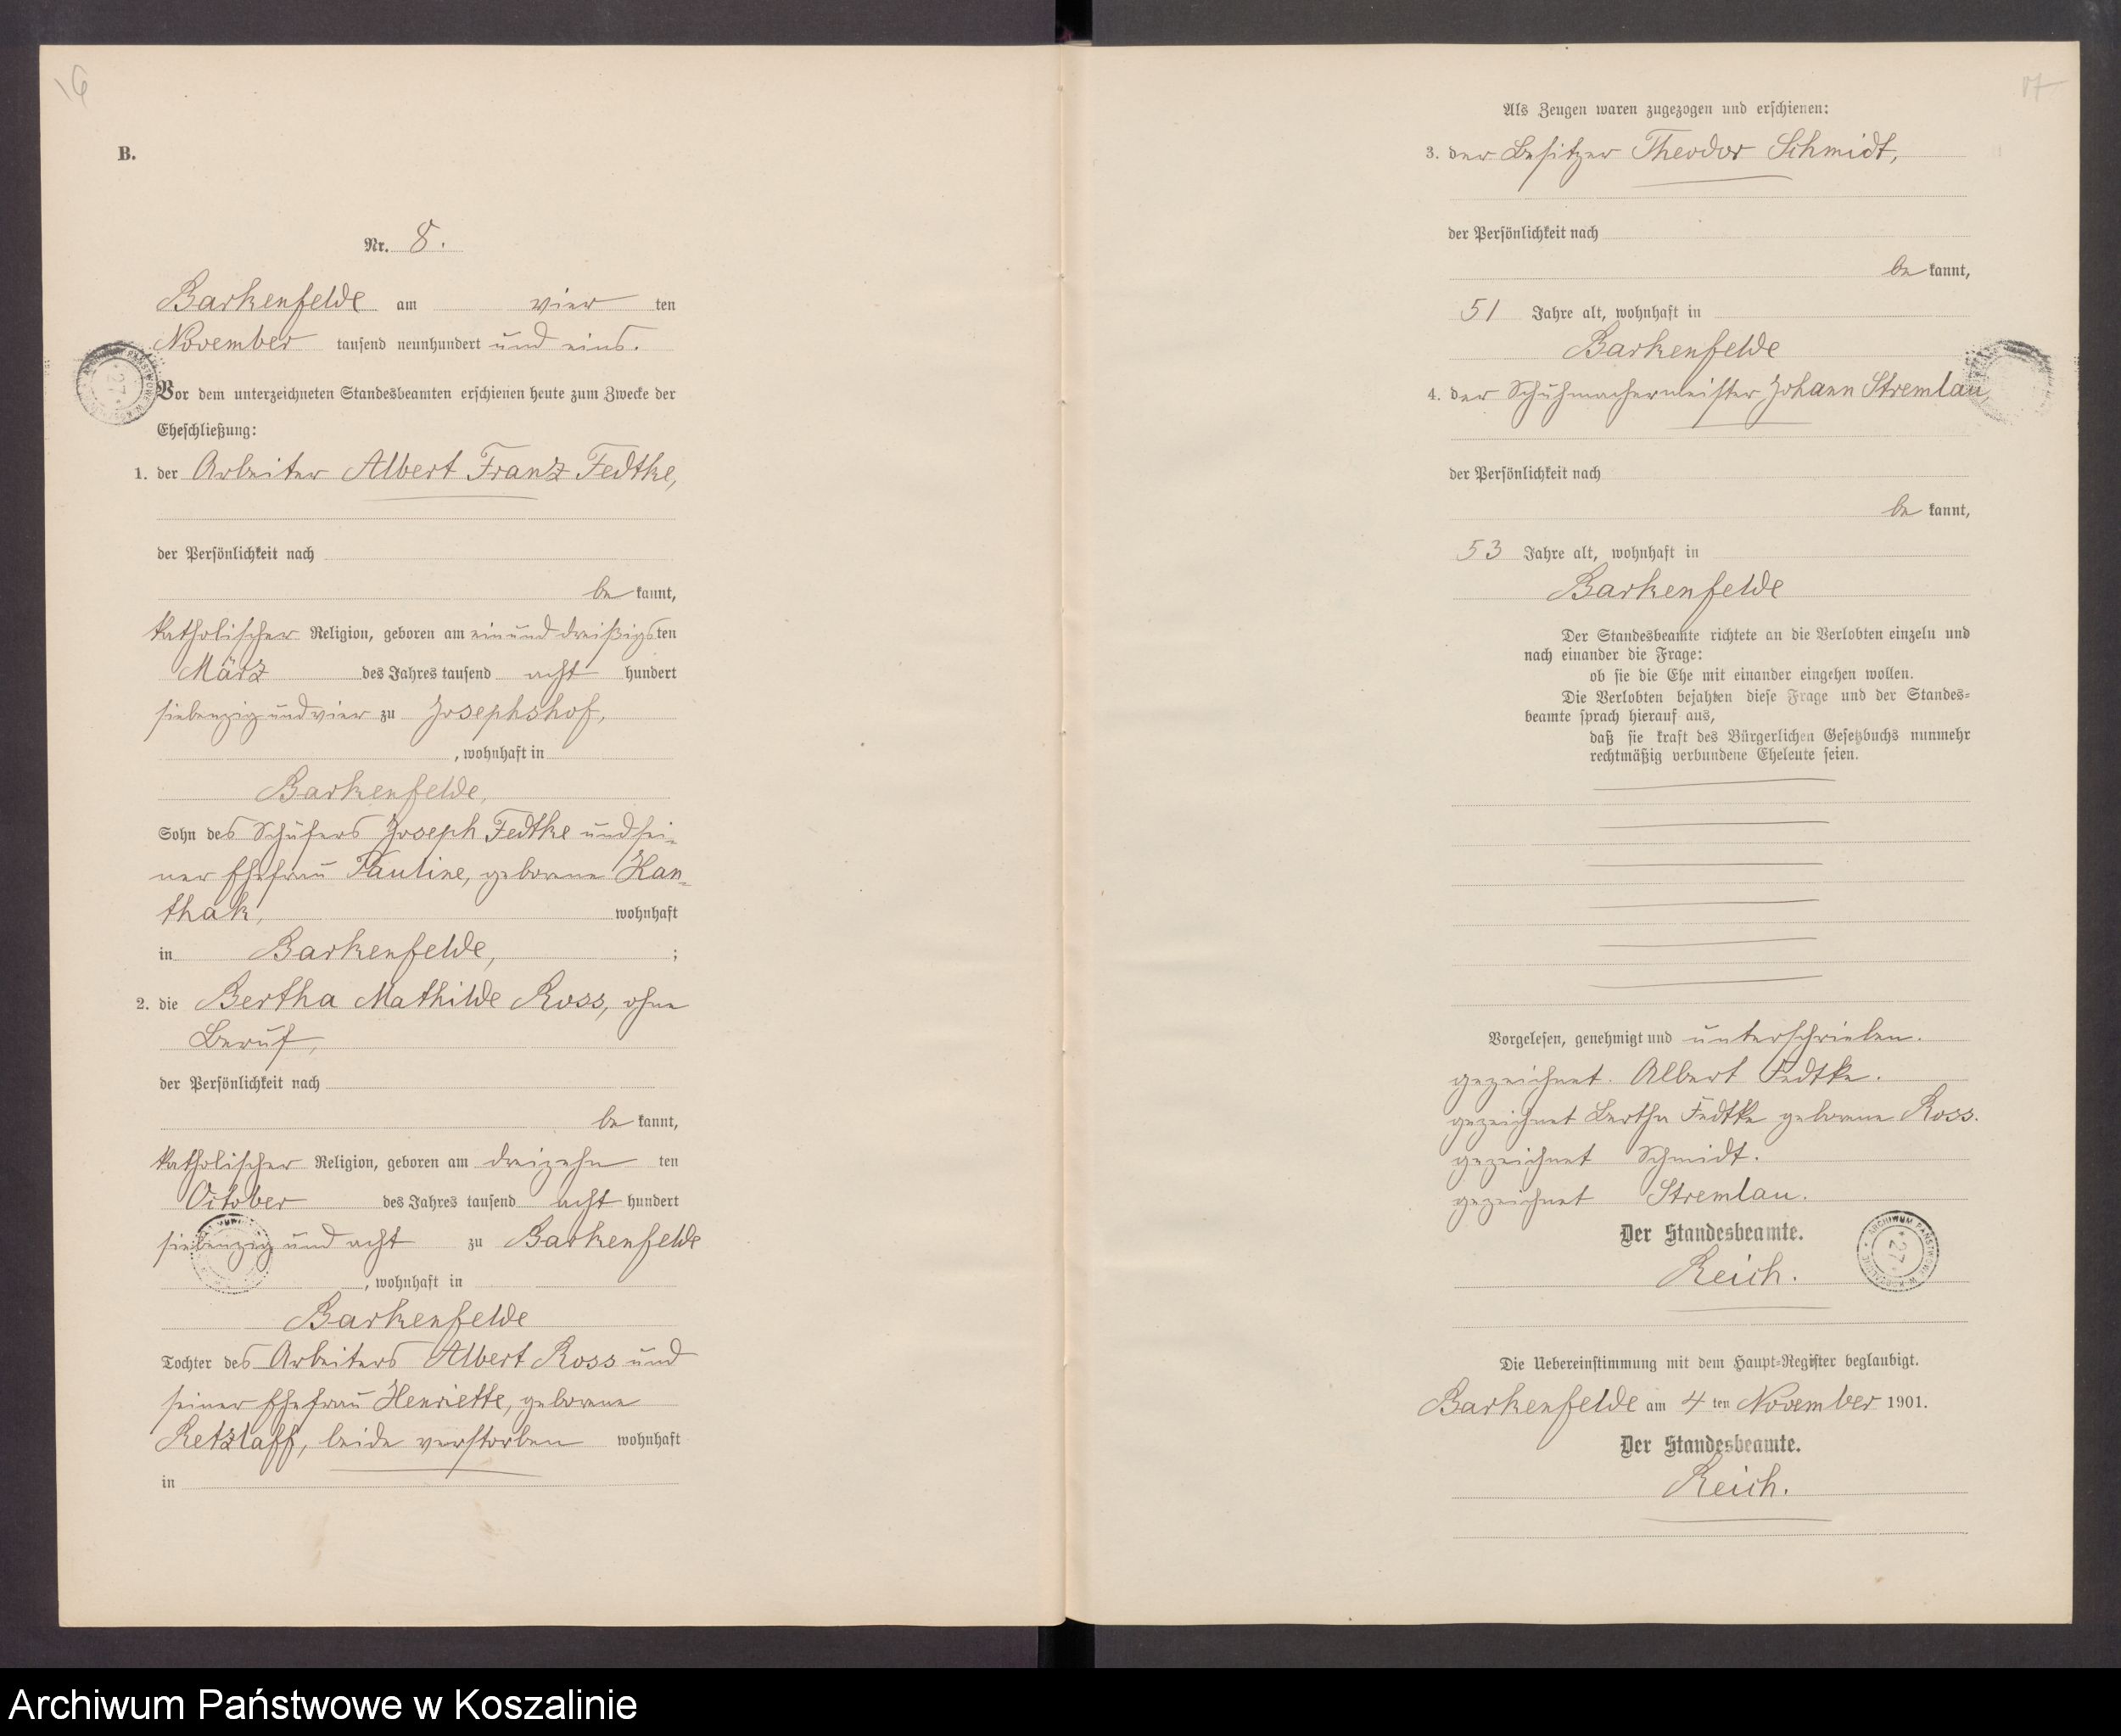 16
B.
Nr. 8.
Barkenfelde am vier ten
November tausend neunhundert und eins.
Vor dem unterzeichneten Standesbeamten erschienen heute zum Zwecke der
Eheschließung:
1. der Arbeiter Albert Franz Fedtke,
der Persönlichkeit nach
be kannt,
katholischer Religion, geboren am einund dreißigsten
März des Jahres tausend acht hundert
siebenzig und vier zu Josephshof,
, wohnhaft in
Barkenfelde,
Sohn des Schäfers Joseph Fedtke und sei-
ner Ehefrau Pauline, geborene Han-
thak, wohnhaft
in Barkenfelde, ;
2. die Bertha Mathilde Ross, ohne
Beruf,
der Persönlichkeit nach
be kannt,
katholischer Religion, geboren am dreizehn ten
October des Jahres tausend acht hundert
siebenzig und acht zu Barkenfelde
, wohnhaft in
Barkenfelde
Tochter des Arbeiters Albert Ross und
seiner Ehefrau Henriette, geborene
Retzlaff, beide verstorben wohnhaft
in
17
Als Zeugen waren zugezogen und erschienen:
3. der Besitzer Theodor Schmidt,
der Persönlichkeit nach
be kannt,
51 Jahre alt, wohnhaft in
Barkenfelde
4. der Schuhmachermeister Johann Stremlau,
der Persönlichkeit nach
be kannt,
53 Jahre alt, wohnhaft in
Barkenfelde
Der Standesbeamte richtete an die Verlobten einzeln und
nach einander die Frage:
ob sie die Ehe mit einander eingehen wollen.
Die Verlobten bejahten diese Frage und der Standes-
beamte sprach hierauf aus,
daß sie kraft des Bürgerlichen Gesetzbuchs nunmehr
rechtmäßig verbundene Eheleute seien.
Vorgelesen, genehmigt und unterschrieben.
gezeichnet. Albert Fedtke.
gezeichnet Bertha Fedtke geborene Ross.
gezeichnet Schmidt.
gezeichnet Stremlau.
Der Standesbeamte.
Reich.
ARCHIWUM PAŃSTWOWE W KOSZALINIE
27
Die Uebereinstimmung mit dem Haupt-Register beglaubigt.
Barkenfelde am 4 ten November 1901.
Der Standesbeamte.
Reich.
Archiwum Państwowe w Koszalinie